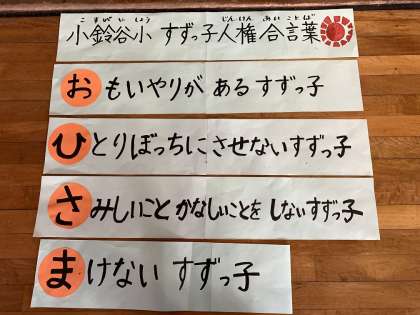 こすがやしょう じんけん あいことば
小鈴谷小 すずっ子人権 合言葉
おもいやりが ある すずっ子
ひとりぼっちに させない すずっ子
さみしいこと かなしいことを しない すずっ子
まけない すずっ子